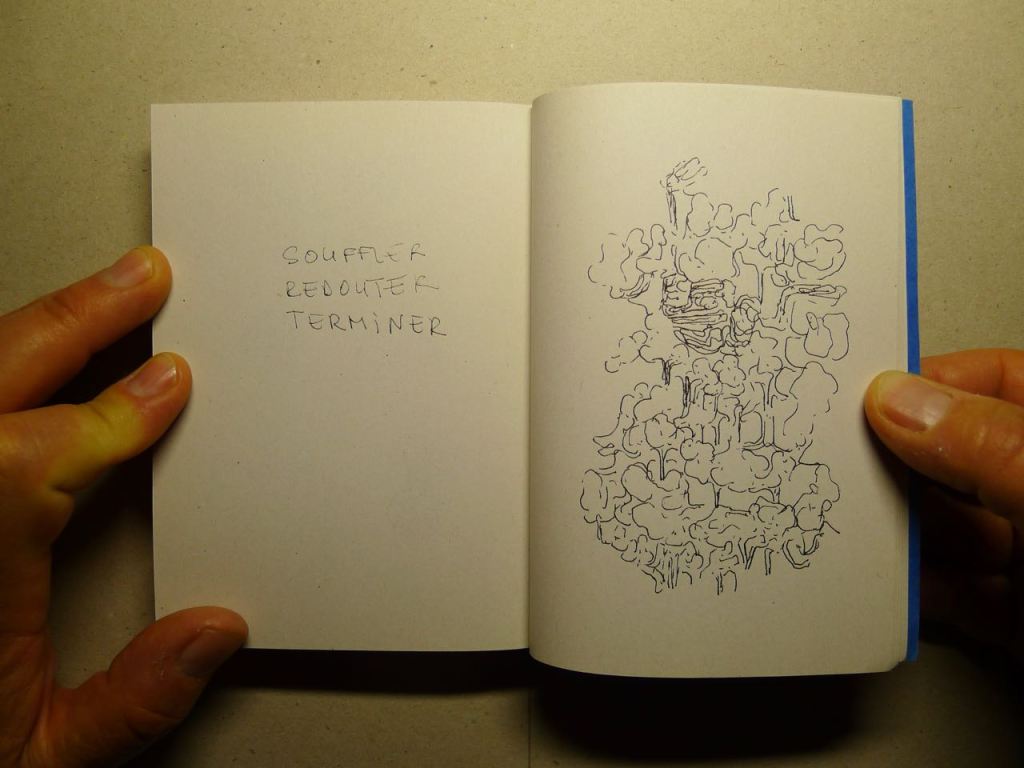 SOUFFLER
REDOUTER
TERMINER